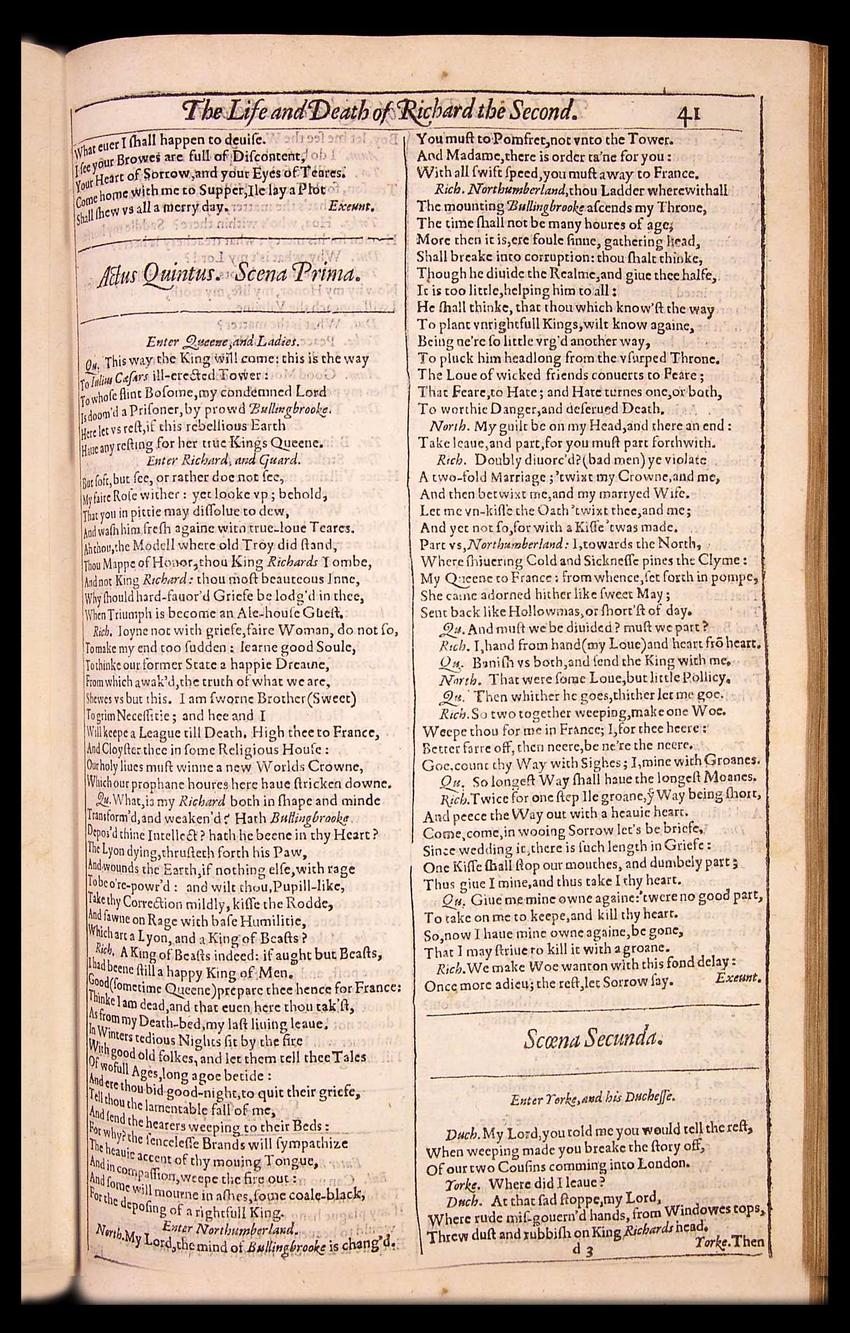 The Life and Death of Richard the Second. 41
What euer I ſhall happen to deuiſe.
I ſee your Browes are full of Diſcontent,
Your Heart of Sorrow, and your Eyes of Teares.
Come home with me to Supper, Ile lay a Plot
Shall ſhew vs all a merry day. Exeunt.
Actus Quintus. Scena Prima.
Enter Queene, and Ladies.
Qu. This way the King will come: this is the way
To Iulius Cæſars ill-erected Tower:
To whoſe flint Boſome, my condemned Lord
Is doom'd a Priſoner, by prowd Bullingbrooke.
Here let vs reſt, if this rebellious Earth
Haue any reſting for her true Kings Queene.
Enter Richard, and Guard.
But ſoft, but ſee, or rather doe not ſee,
My faire Roſe wither: yet looke vp; behold,
That you in pittie may diſſolue to dew,
And waſh him freſh againe with true-loue Teares.
Ah thou, the Modell where old Troy did ſtand,
Thou Mappe of Honor, thou King Richards Tombe,
And not King Richard: thou moſt beauteous Inne,
Why ſhould hard-fauor'd Griefe be lodg'd in thee,
When Triumph is become an Ale-houſe Gueſt.
Rich. Ioyne not with griefe, faire Woman, do not ſo,
To make my end too ſudden: learne good Soule,
To thinke our former State a happie Dreame,
From which awak'd, the truth of what we are,
Shewes vs but this. I am ſworne Brother (Sweet)
To grim Neceſſitie; and hee and I
Will keepe a League till Death. High thee to France,
And Cloyſter thee in ſome Religious Houſe:
Our holy liues muſt winne a new Worlds Crowne,
Which our prophane houres here haue ſtricken downe.
Qu. What, is my Richard both in ſhape and minde
Transform'd, and weaken'd? Hath Bullingbrooke
Depos'd thine Intellect? hath he beene in thy Heart?
The Lyon dying, thruſteth forth his Paw,
And wounds the Earth, if nothing elſe, with rage
To be o're-powr'd: and wilt thou, Pupill-like,
Take thy Correction mildly, kiſſe the Rodde,
And fawne on Rage with baſe Humilitie,
Which art a Lyon, and a King of Beaſts?
Rich. A King of Beaſts indeed: if aught but Beaſts,
I had beene ſtill a happy King of Men.
Good (ſometime Queene) prepare thee hence for France:
Thinke I am dead, and that euen here thou tak'ſt,
As from my Death-bed, my laſt liuing leaue.
In Winters tedious Nights ſit by the fire
With good old folkes, and let them tell thee Tales
Of wofull Ages, long agoe betide:
And ere thou bid good-night, to quit their griefe,
Tell thou the lamentable fall of me,
And ſend the hearers weeping to their Beds:
For why? the ſenceleſſe Brands will ſympathize
The heauie accent of thy mouing Tongue,
And in compaſſion, weepe the fire out:
And ſome will mourne in aſhes, ſome coale-black,
For the depoſing of a rightfull King.
Enter Northumberland.
North. My Lord, the mind of Bullingbrooke is chang'd.
You muſt to Pomfret, not vnto the Tower.
And Madame, there is order ta'ne for you:
With all ſwift ſpeed, you muſt away to France.
Rich. Northumberland, thou Ladder wherewithall
The mounting Bullingbrooke aſcends my Throne,
The time ſhall not be many houres of age,
More then it is, ere foule ſinne, gathering head,
Shall breake into corruption: thou ſhalt thinke,
Though he diuide the Realme, and giue thee halfe,
It is too little, helping him to all:
He ſhall thinke, that thou which know'ſt the way
To plant vnrightfull Kings, wilt know againe,
Being ne're ſo little vrg'd another way,
To pluck him headlong from the vſurped Throne.
The Loue of wicked friends conuerts to Feare;
That Feare, to Hate; and Hate turnes one, or both,
To worthie Danger, and deſerued Death.
North. My guilt be on my Head, and there an end:
Take leaue, and part, for you muſt part forthwith.
Rich. Doubly diuorc'd? (bad men) ye violate
A two-fold Marriage; 'twixt my Crowne, and me,
And then betwixt me, and my marryed Wife.
Let me vn-kiſſe the Oath 'twixt thee, and me;
And yet not ſo, for with a Kiſſe 'twas made.
Part vs, Northumberland: I, towards the North,
Where ſhiuering Cold and Sickneſſe pines the Clyme:
My Queene to France: from whence, ſet forth in pompe,
She came adorned hither like ſweet May;
Sent back like Hollowmas, or ſhort'ſt of day.
Qu. And muſt we be diuided? muſt we part?
Rich. I, hand from hand (my Loue) and heart frõ heart.
Qu. Baniſh vs both, and ſend the King with me.
North. That were ſome Loue, but little Pollicy.
Qu. Then whither he goes, thither let me goe.
Rich. So two together weeping, make one Woe.
Weepe thou for me in France; I, for thee heere:
Better farre off, then neere, be ne're the neere.
Goe, count thy Way with Sighes; I, mine with Groanes.
Qu. So longeſt Way ſhall haue the longeſt Moanes.
Rich. Twice for one ſtep Ile groane, ẏ Way being ſhort,
And peece the Way out with a heauie heart.
Come, come, in wooing Sorrow let's be briefe,
Since wedding it, there is ſuch length in Griefe:
One Kiſſe ſhall ſtop our mouthes, and dumbely part;
Thus giue I mine, and thus take I thy heart.
Qu. Giue me mine owne againe: 'twere no good part,
To take on me to keepe, and kill thy heart.
So, now I haue mine owne againe, be gone,
That I may ſtriue to kill it with a groane.
Rich. We make Woe wanton with this fond delay:
Once more adieu; the reſt, let Sorrow ſay. Exeunt.
Scœna Secunda.
Enter Yorke, and his Ducheſſe.
Duch. My Lord, you told me you would tell the reſt,
When weeping made you breake the ſtory off,
Of our two Couſins comming into London.
Yorke. Where did I leaue?
Duch. At that ſad ſtoppe, my Lord,
Where rude miſ-gouern'd hands, from Windowes tops,
Threw duſt and rubbiſh on King Richards head.
d 3 Yorke. Then